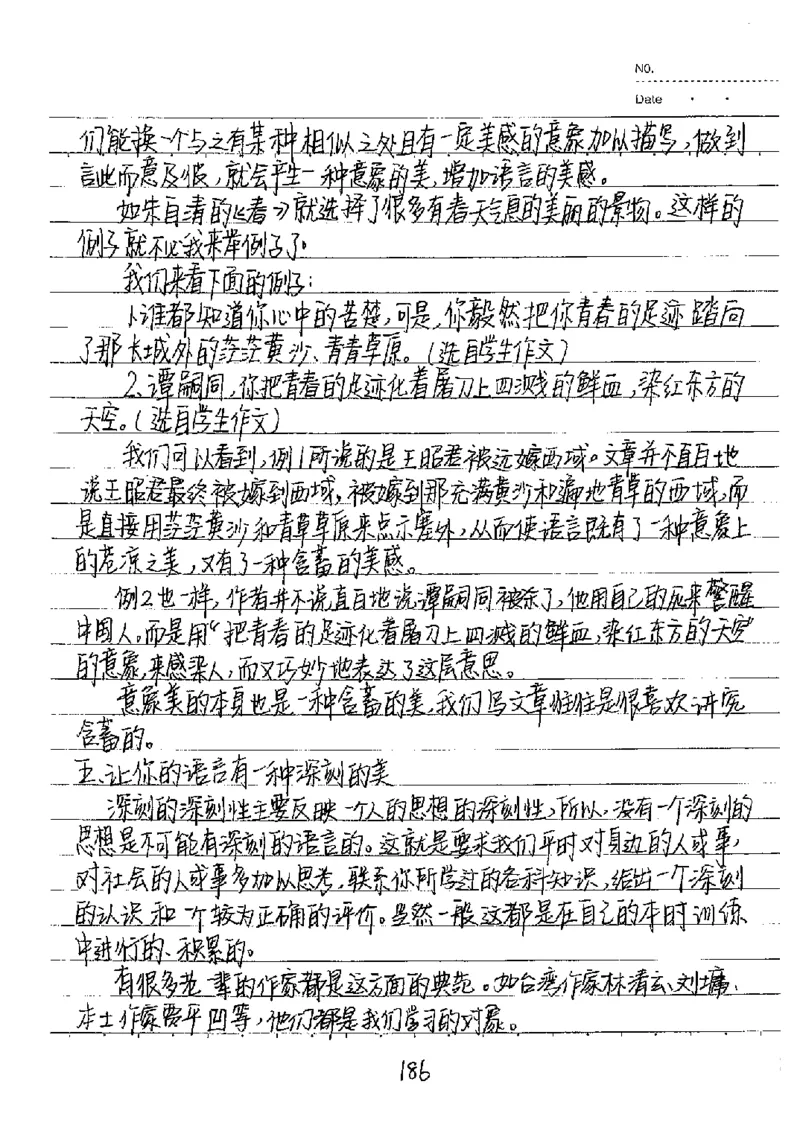 NO.
Date
们能换一个与之有某种相似之处且有一定美感的意象加以描写,做到
言此而意及彼,就会产生一种意象的美,增加语言的美感。
如朱自清的《春》就选择了很多有春天气息的美丽的景物。这样的
例子就不必我来举例子了。
我们来看下面的例子:
1、谁都知道你心中的苦楚,可是,你毅然把你青春的足迹踏向
了那长城外的茫茫黄沙、青青草原。(选自学生作文)
2、谭嗣同,你把青春的足迹化着屠刀上四溅的鲜血,染红东方的
天空。(选自学生作文)
我们可以看到,例1所说的是王昭君被远嫁西域。文章并不直白地
说王昭君最终被嫁到西域,被嫁到那充满黄沙和遍地青草的西域,而
是直接用茫茫黄沙和青草草原来点示塞外,从而使语言既有了一种意象上
的苍凉之美,又有了一种含蓄的美感。
例2也一样,作者并不说直白地说谭嗣同被杀了,他用自己的死来警醒
中国人。而是用“把青春的足迹化着屠刀上四溅的鲜血,染红东方的天空”
的意象,来感染人,而又巧妙地表达了这层意思。
意象美的本身也是一种含蓄的美,我们写文章往往是很喜欢讲究
含蓄的。
五、让你的语言有一种深刻的美
深刻的深刻性主要反映一个人的思想的深刻性,所以,没有一个深刻的
思想是不可能有深刻的语言的。这就是要求我们平时对身边的人或事,
对社会的人或事多加以思考,联系你所学过的各科知识,给出一个深刻
的认识和一个较为正确的评价。当然一般这都是在自己的本时训练
中进行的、积累的。
有很多老一辈的作家都是这方面的典范。如台湾作家林清玄、刘墉、
本土作家贾平凹等,他们都是我们学习的对象。
186